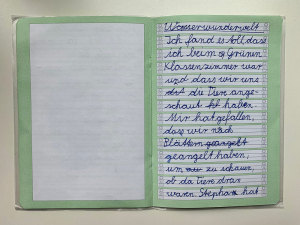 Wasserwunderwelt
Ich fand es toll dass
ich beim Grünen
Klassenzimmer war
und dass wir uns
die Tiere ange-
schaut haben.
Mir hat gefallen,
dass wir nach
Blättern geangelt
geangelt haben,
um zu schauen,
ob da Tiere dran
waren. Stephan hat